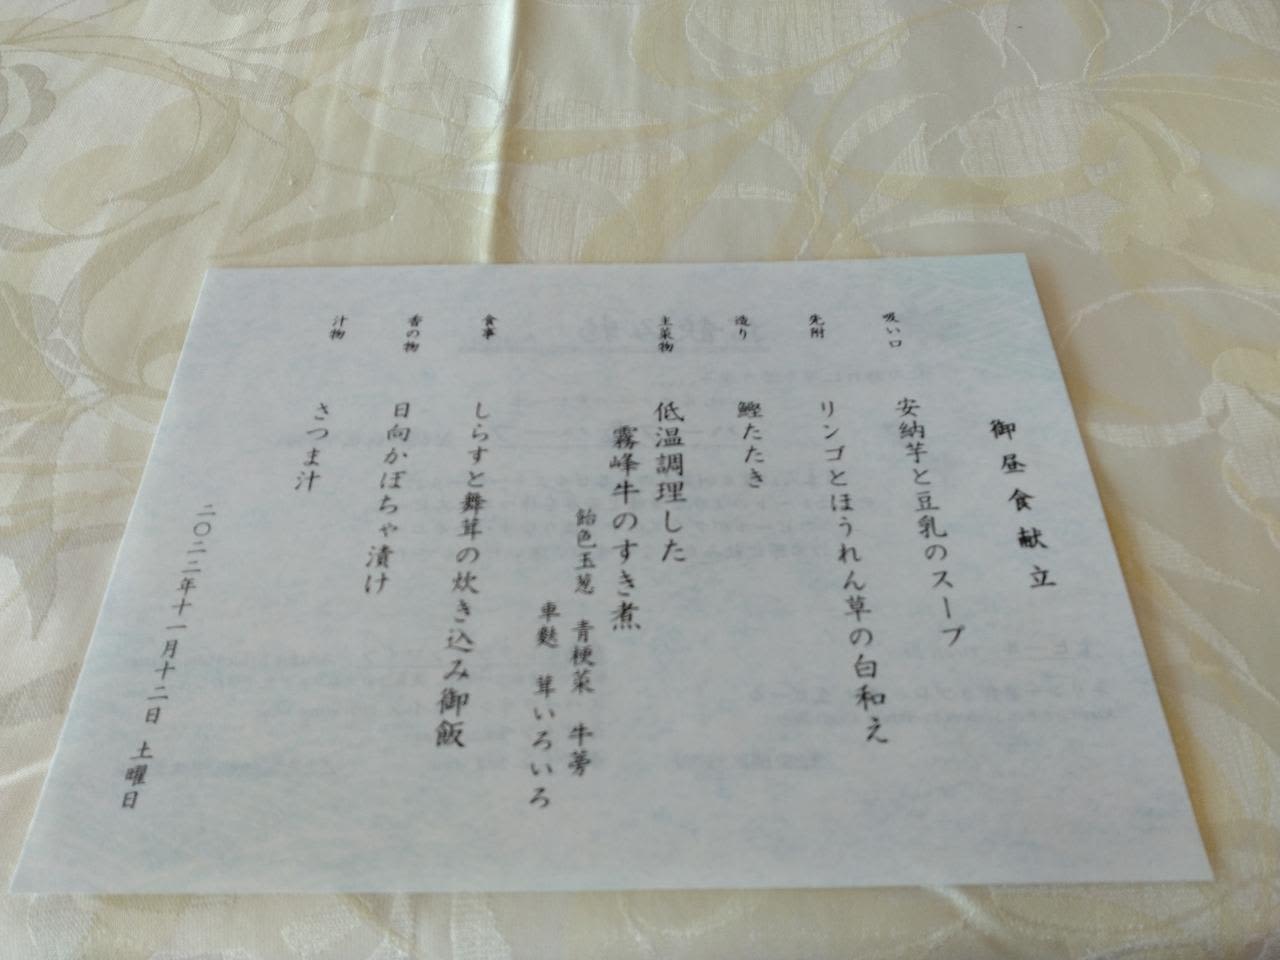 御昼食献立
吸い口 安納芋と豆乳のスープ
先附 リンゴとほうれん草の白和え
造り 鰹たたき
主菜物 低温調理した
霧峰牛のすき煮
飴色玉葱 青梗菜 牛蒡
車麩 茸いろいろ
食事 しらすと舞茸の炊き込み御飯
香の物 日向かぼちゃ漬け
汁物 さつま汁
二〇二二年十一月十二日 土曜日